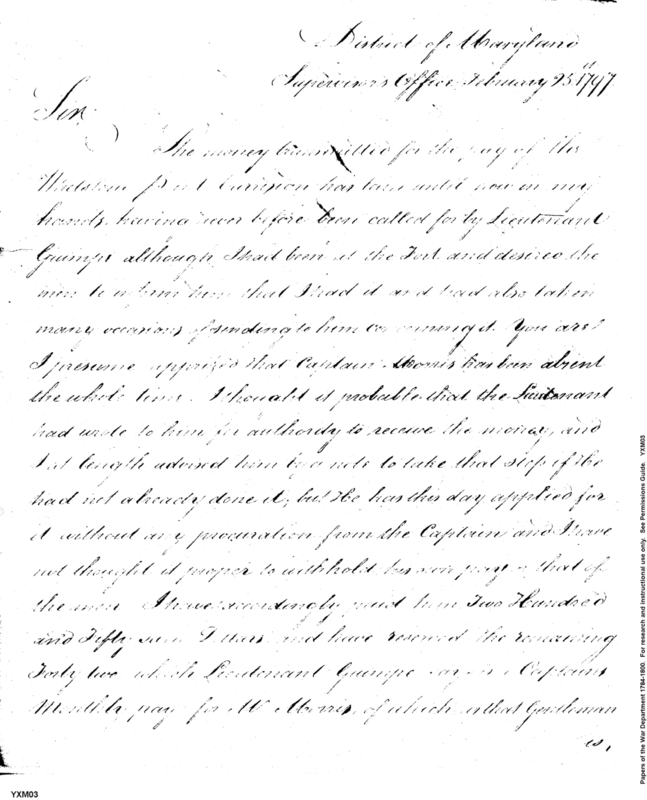 District of Maryland
Supervisor's Office February 25th 1797
Sir
The money transmitted for the pay of the
Whetstone Point Garrison has been until now in my
hands, having never before been called for by Lieutenant
Gumpe although I had been at the Fort and desired the
men to inform him that I had it and had also taken
many occasions of sending to him concerning it. You are
I presume apprized that Captain Morris has been absent
the whole time. I thought it probable that the Lieutenant
had wrote to him for authority to receive the money, and
I at length advised him by a note to take that step if he
had not already done it, but He has this day applied for
it without any procuration from the Captain and I have
not thought it proper to withhold his own pay or that of
the men I have accordingly paid him Two Hundred
and Fifty Dollars and have reserved the remaining
Forty two which Lieutenant Gumpe says is a Captains
Monthly pay for Mr Morris, of which that Gentleman
is,
YXM03
Papers of the War Department 1784-1800. For research and instructional use only. See Permissions Guide. YXM03